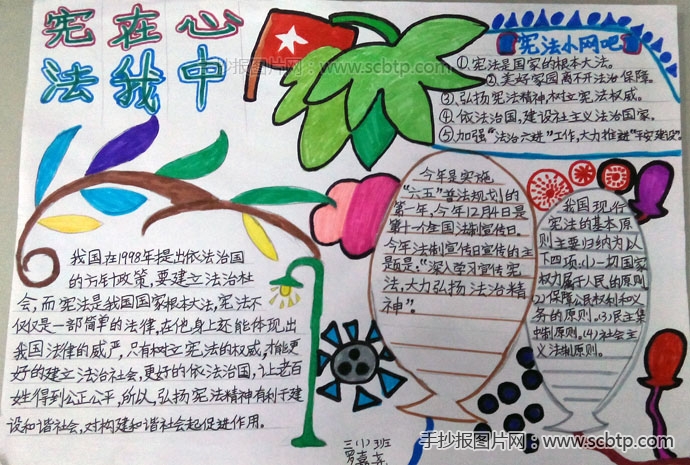 宪在心
法我中
手抄报图片网：www.scbtp.com
宪法小网吧
①宪法是国家的根本大法。
②美好家园离开法治保障。
③弘扬宪法精神树立宪法权威。
④依法治国，建设社主义法治国家。
⑤加强“法治六进”工作，大力推进“平安建设”。
我国在1998年提出依法治国
的方针政策，要建立法治社
会，而宪法是我国国家根本大法，宪法不
仅仅是一部简单的法律，在他身上还能体现出
我国法律的威严，只有树立宪法的权威，才能更
好的建立法治社会，更好的依法治国，让老百
姓得到公正公平，所以，弘扬宪法精神有利于建
设和谐社会，对构建和谐社会起促进作用。
今年是实施
“六五”普法规划的
第一年，今年12月4日是
第十一个全国法制宣传日，
今年法制宣传日宣传的主
题是：“深入学习宣传宪
法，大力弘扬法治精
神”。
我国现行
宪法的基本原
则主要归纳为以
下四项：(1)一切国家
权力属于人民的原则
(2)保障公民权利和义
务的原则。(3)民主集
中制原则。(4)社会主
义法制原则。
三(1)班
罗嘉
手抄报图片网：www.scbtp.com